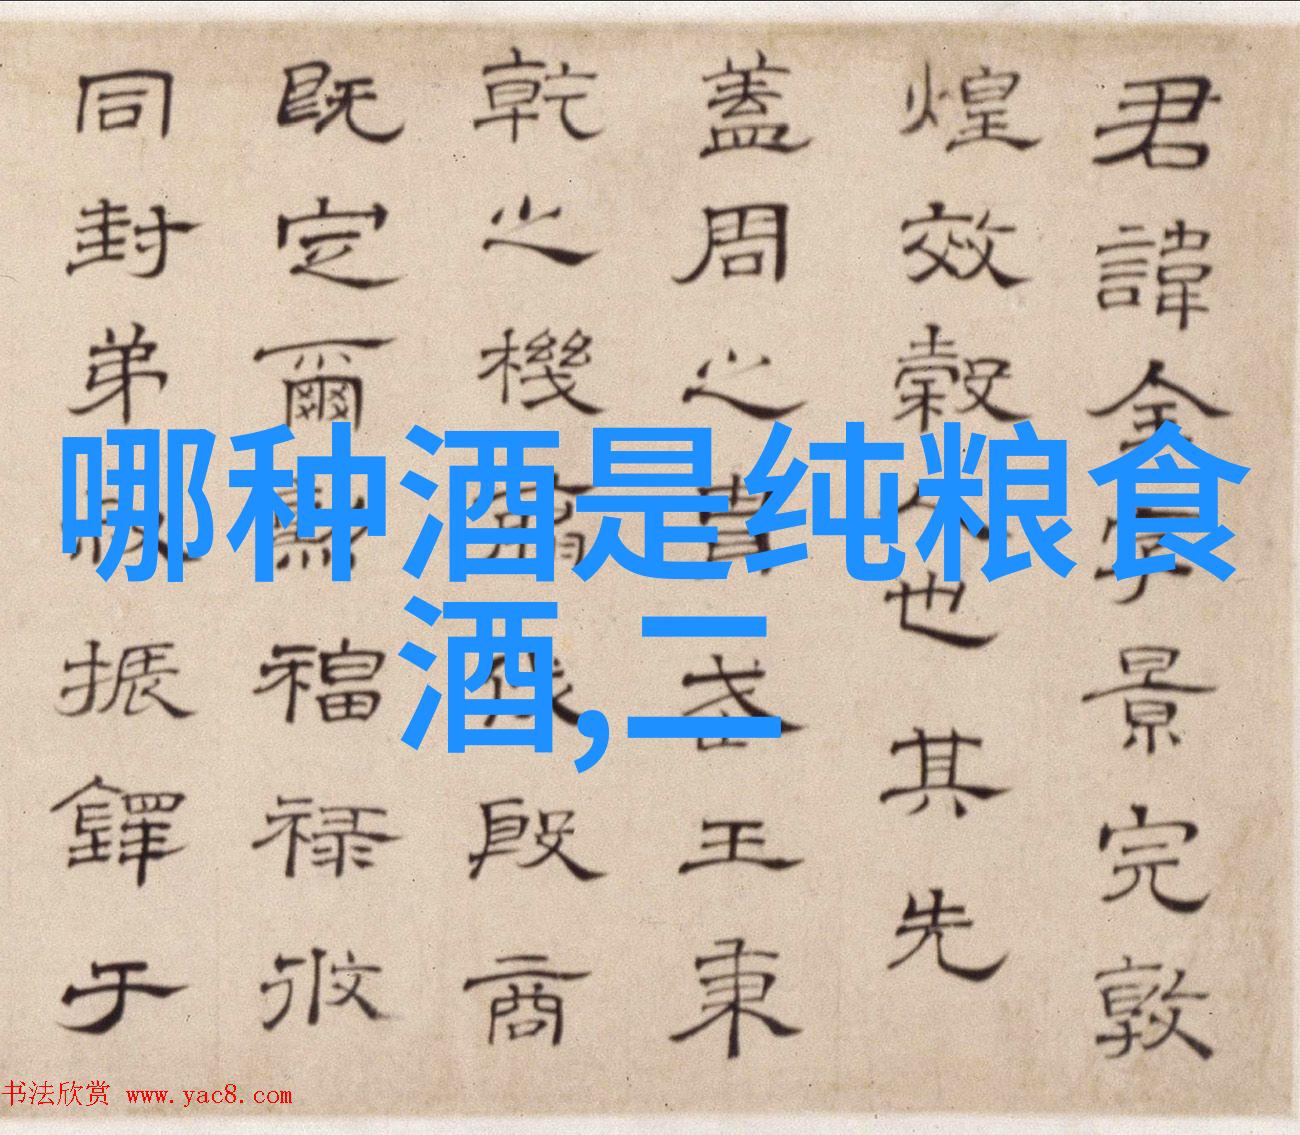 哪种酒是纯粮食
酒,二
君諱全字景完敦
煌效穀人也其先
蓋周之胄武王秉
乾之機翦伐殷商
既定爾勳福祿攸
同封弟叔振鐸于
书法欣赏 www.yac8.com